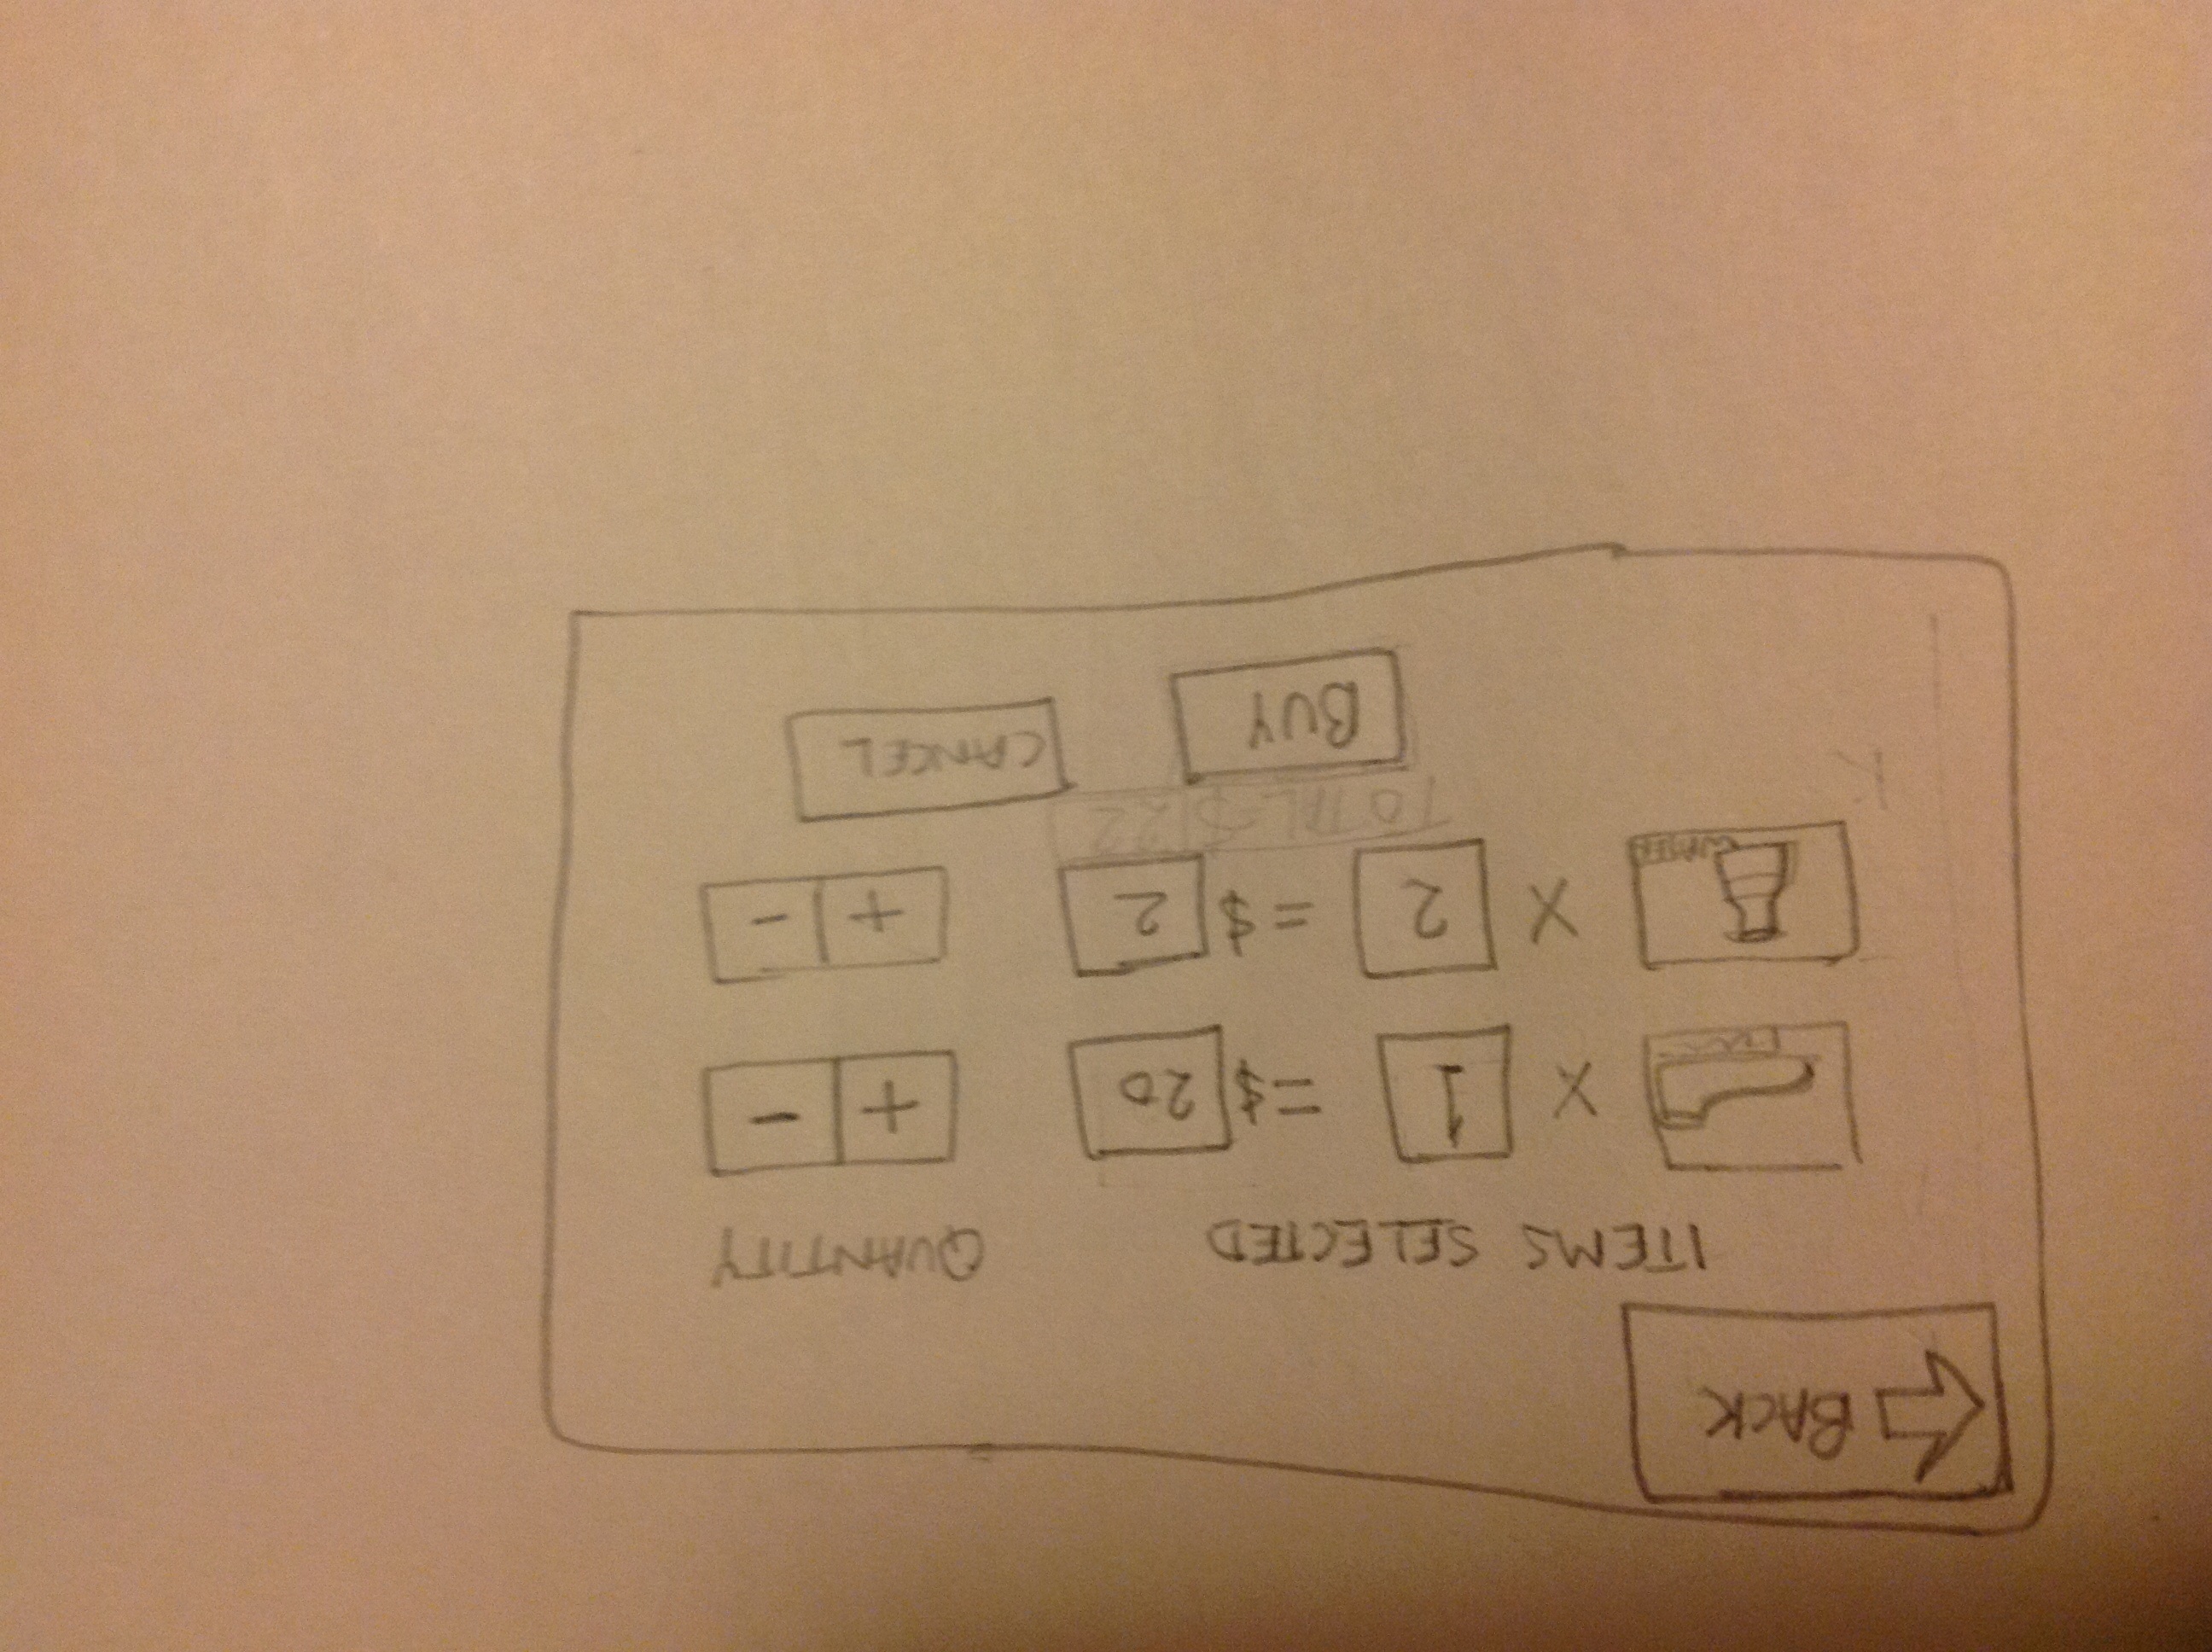 BACK
ITEMS SELECTED QUANTITY
X 1 =$ 20 + -
X 2 =$ 2 + -
WATER
TOTAL $ 22
BUY CANCEL